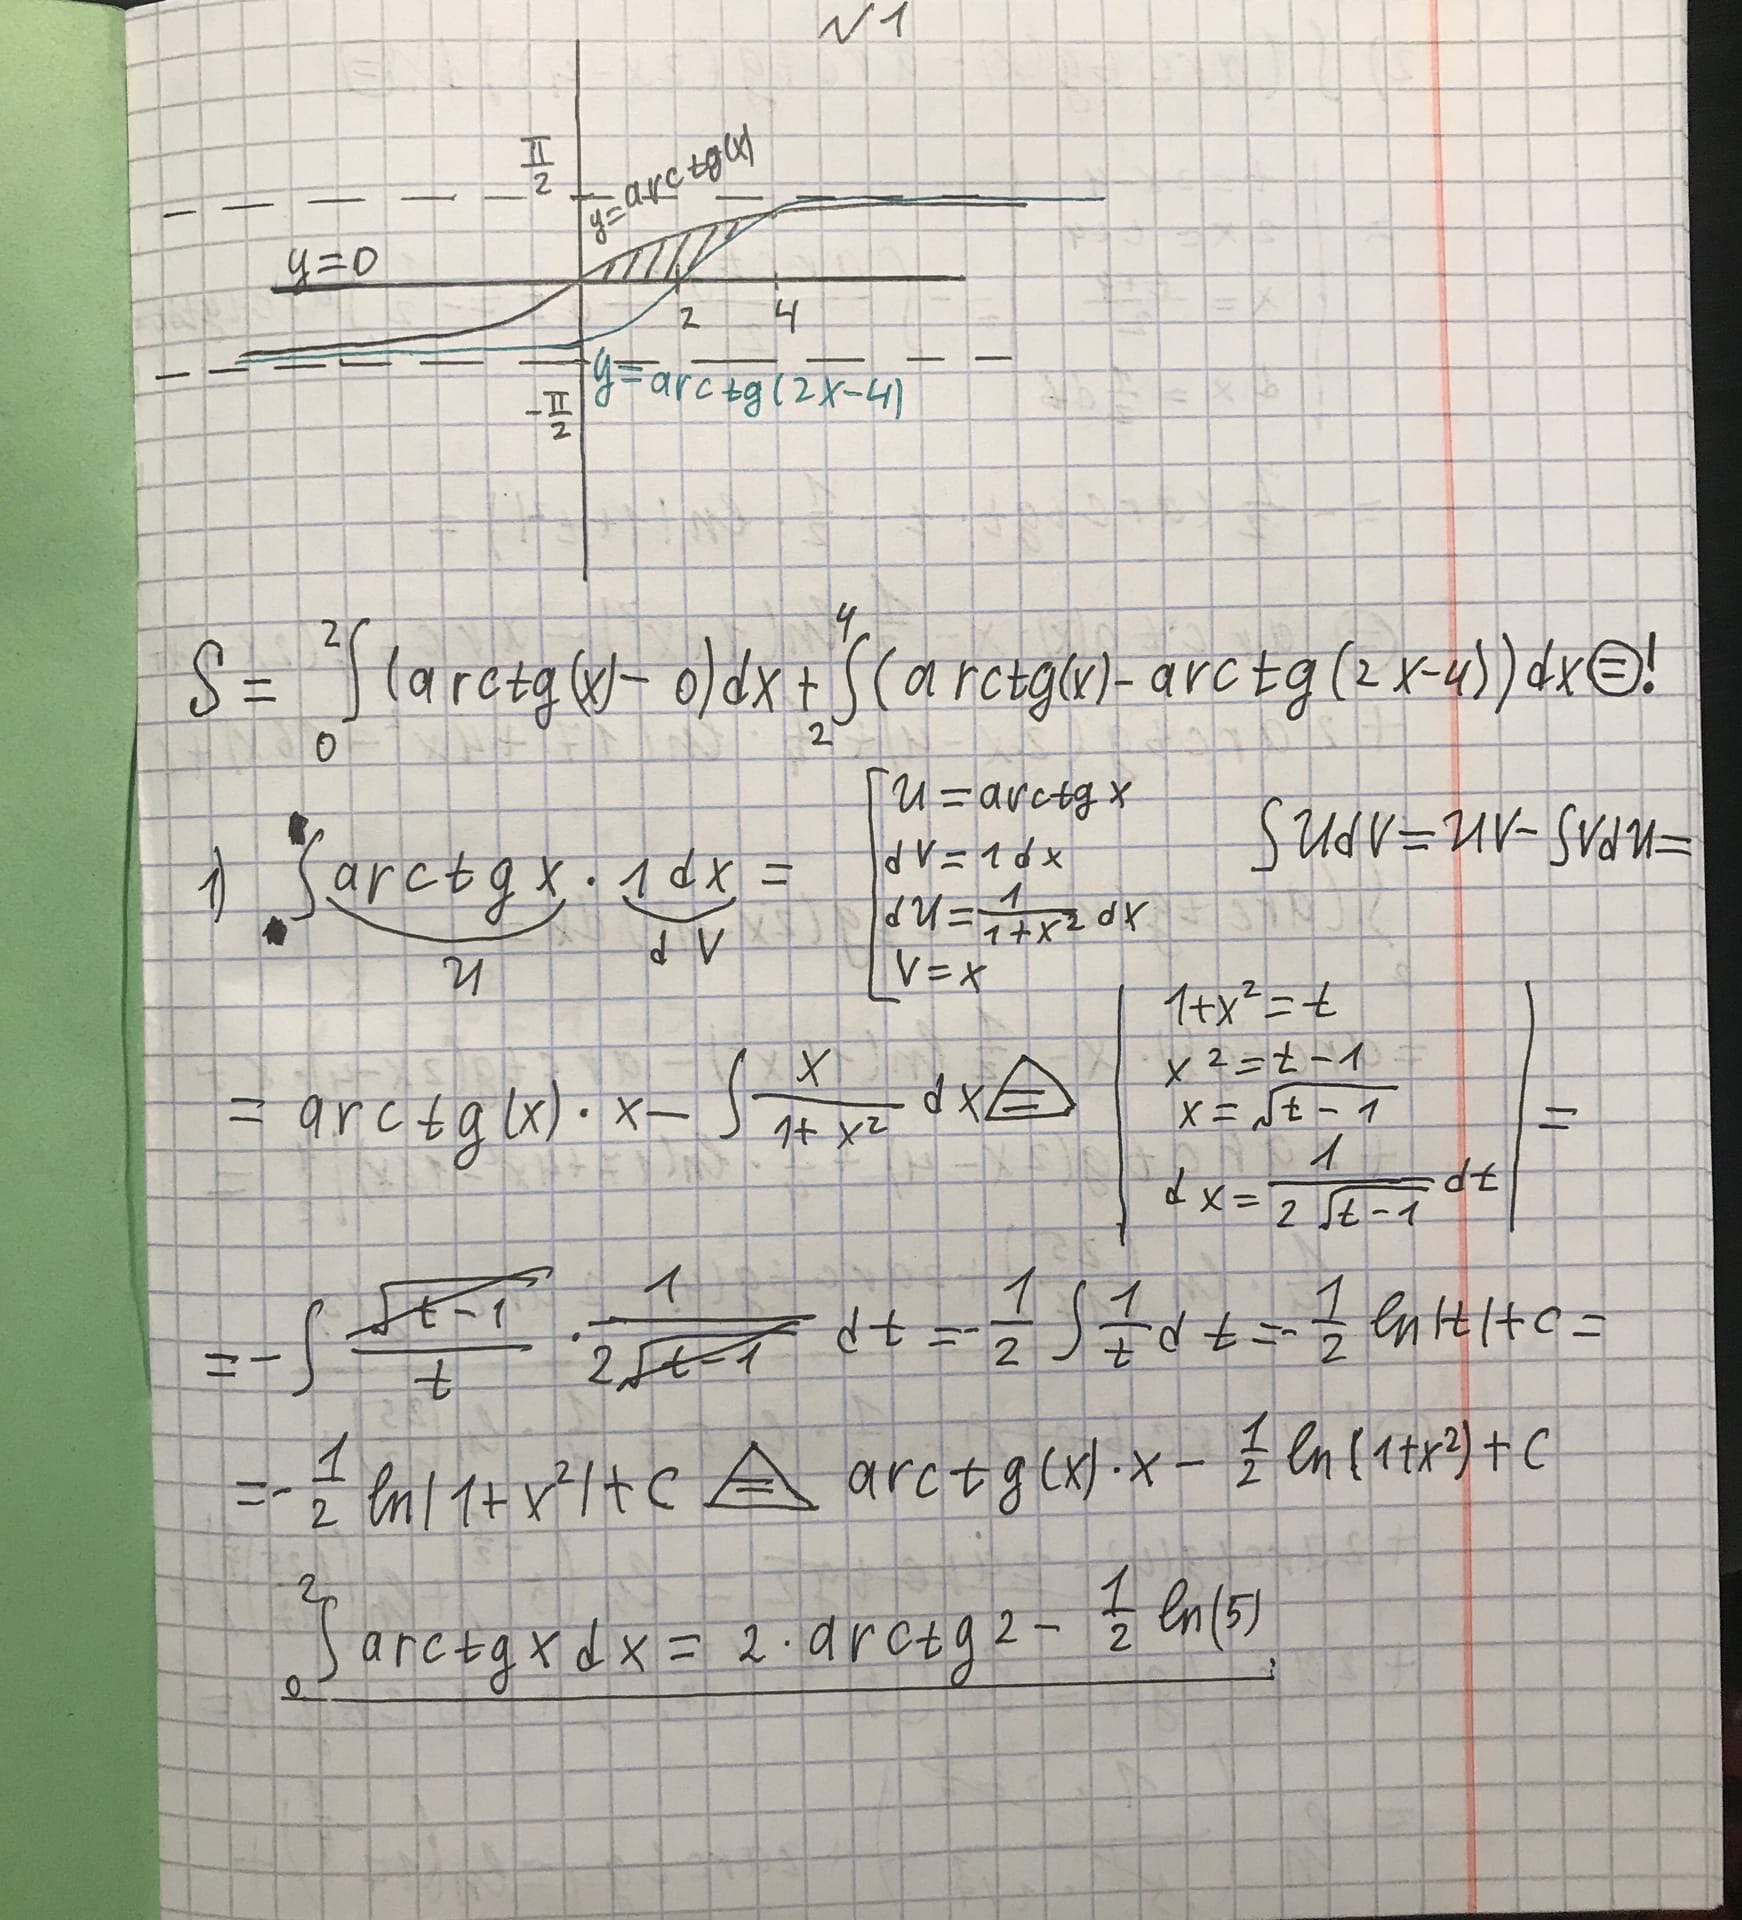 √1
π/2
y=arctg(x)
y=0
2 4
-π/2
y=arctg(2x-4)
S = ∫₀² (arctg(x)-0)dx + ∫₂⁴ (arctg(x)-arctg(2x-4))dx ⊜!
1) ∫ arctg x · 1 dx =
u dV
u = arctg x
dV = 1 dx
du = 1/(1+x²) dx
V = x
∫UdV = UV - ∫VdU =
= arctg(x)·x - ∫ x/(1+x²) dx =
1+x² = t
x² = t-1
x = √(t-1)
dx = 1/(2√(t-1)) dt
=
= -∫ √(t-1)/t · 1/(2√(t-1)) dt = -1/2 ∫ 1/t dt = -1/2 ln|t|+c =
= -1/2 ln|1+x²|+c = arctg(x)·x - 1/2 ln(1+x²)+c
∫₀² arctg x dx = 2·arctg 2 - 1/2 ln(5);